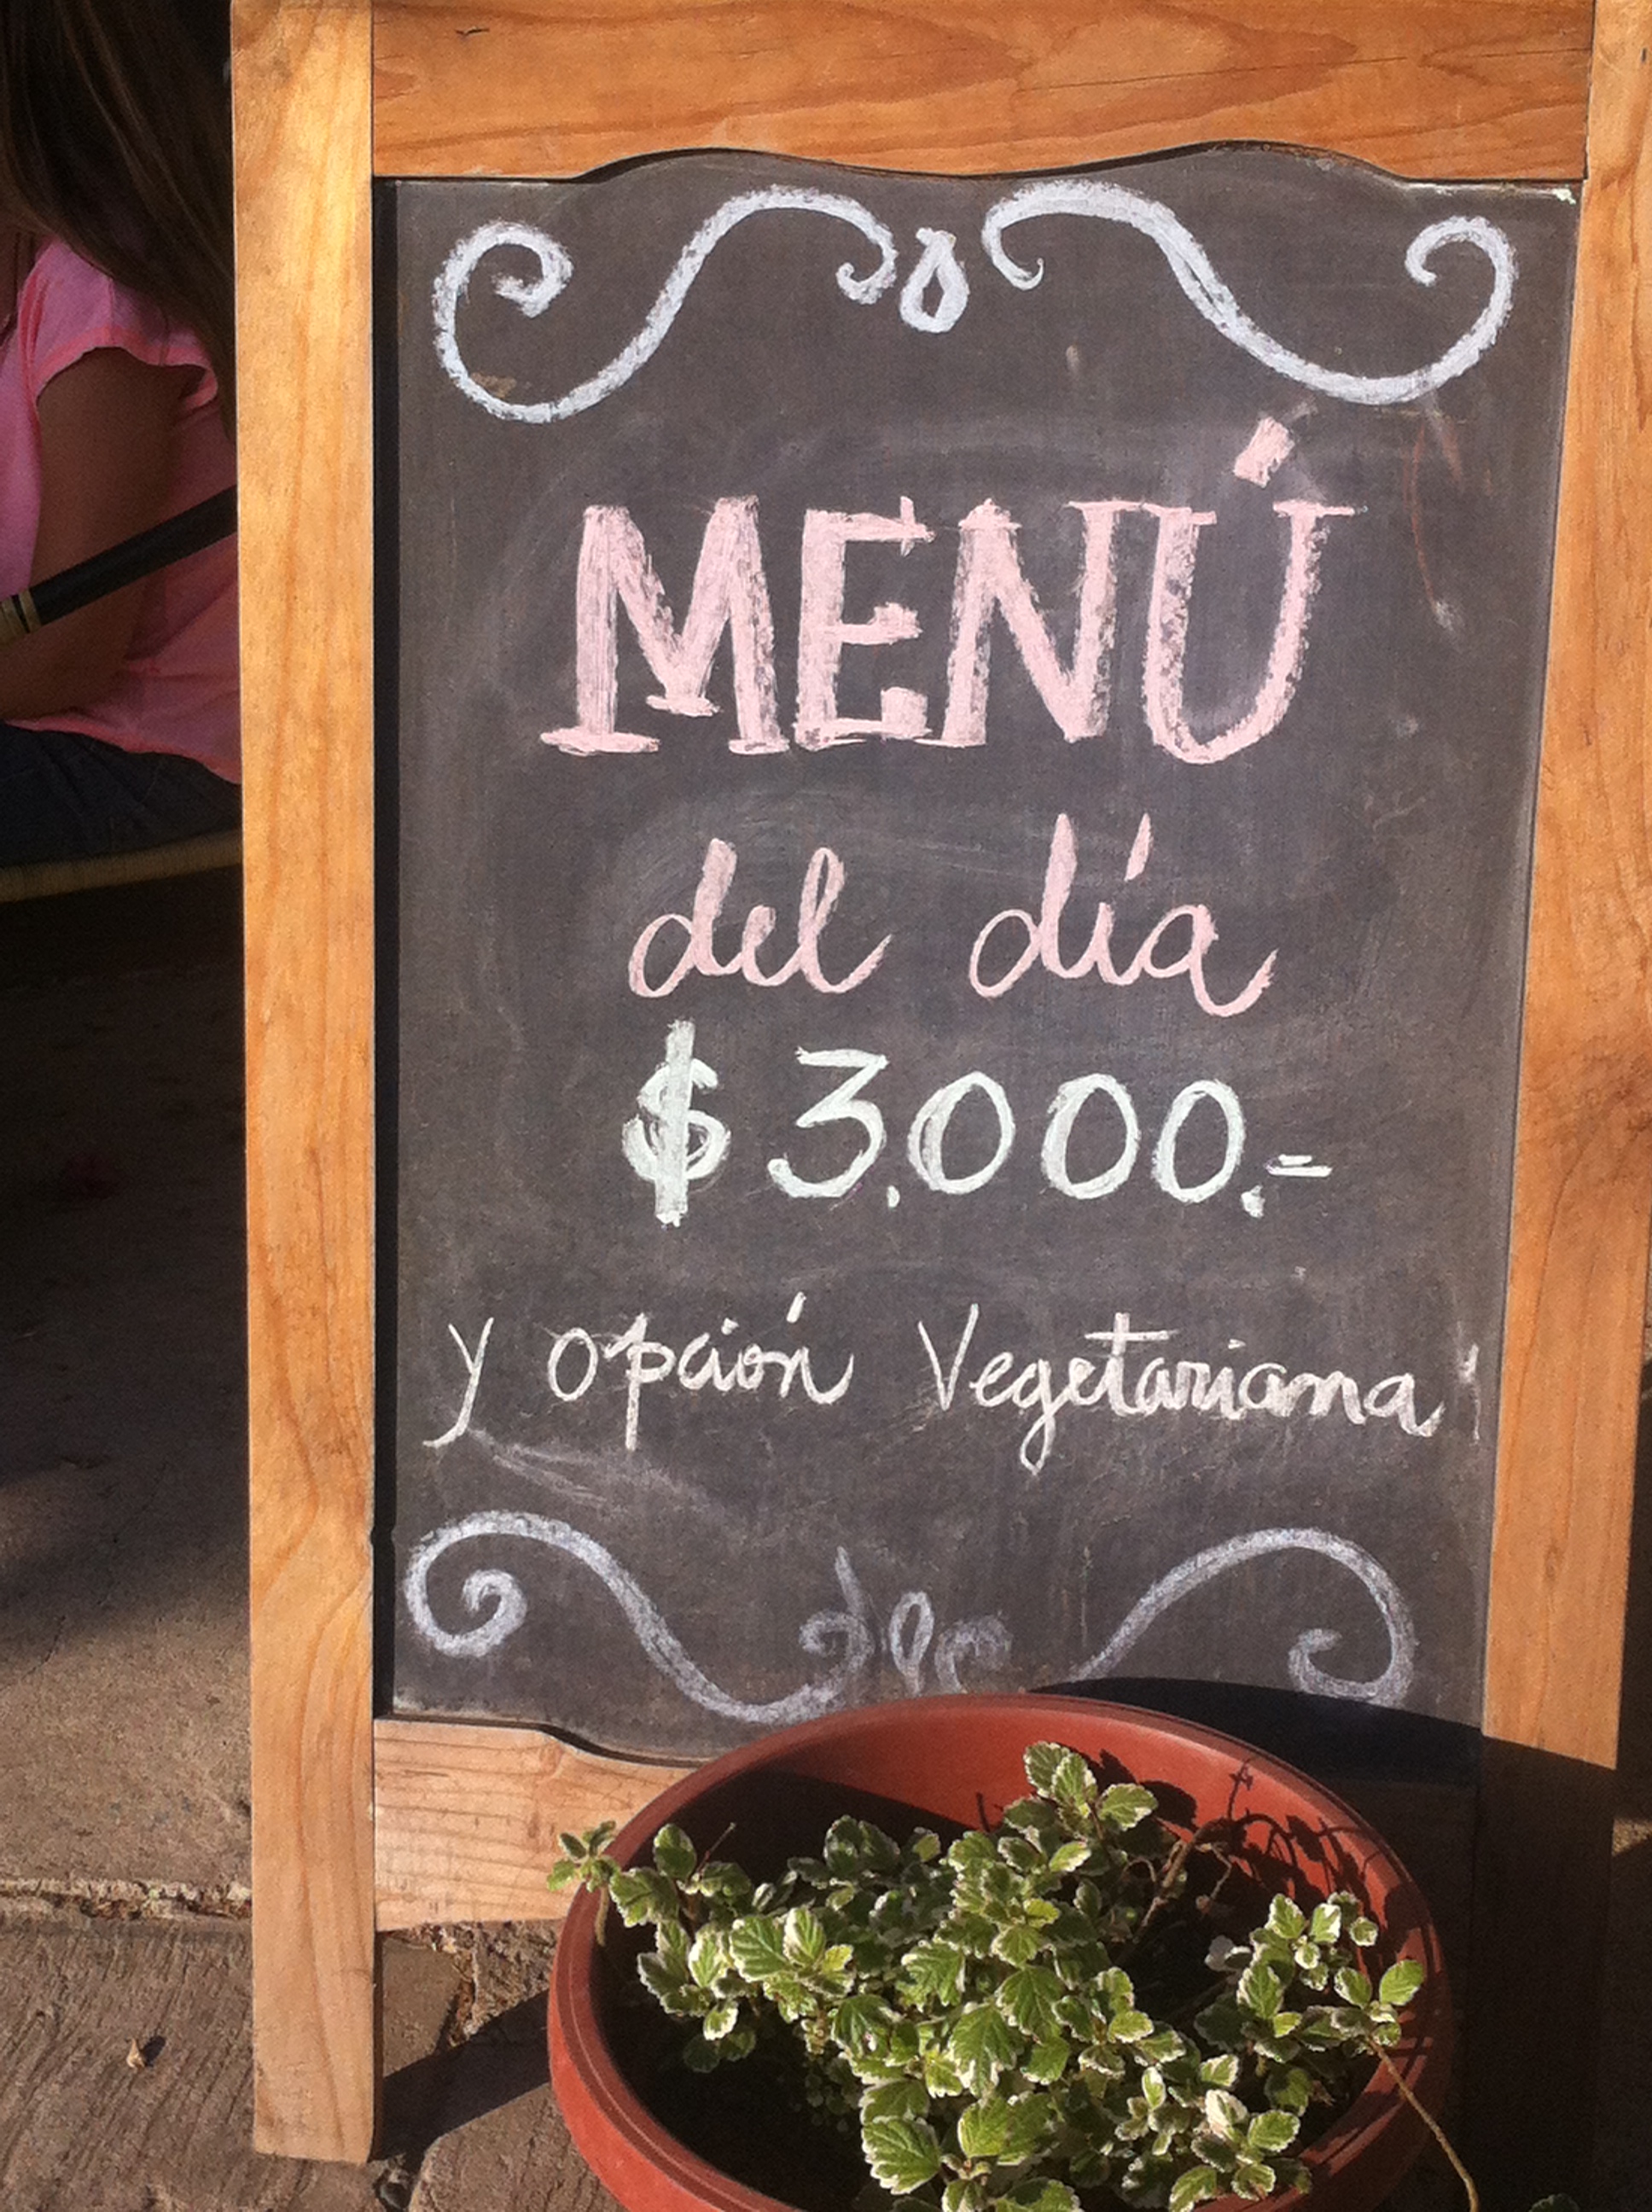 MENÚ
del día
$ 3.000.-
y opción Vegetariana